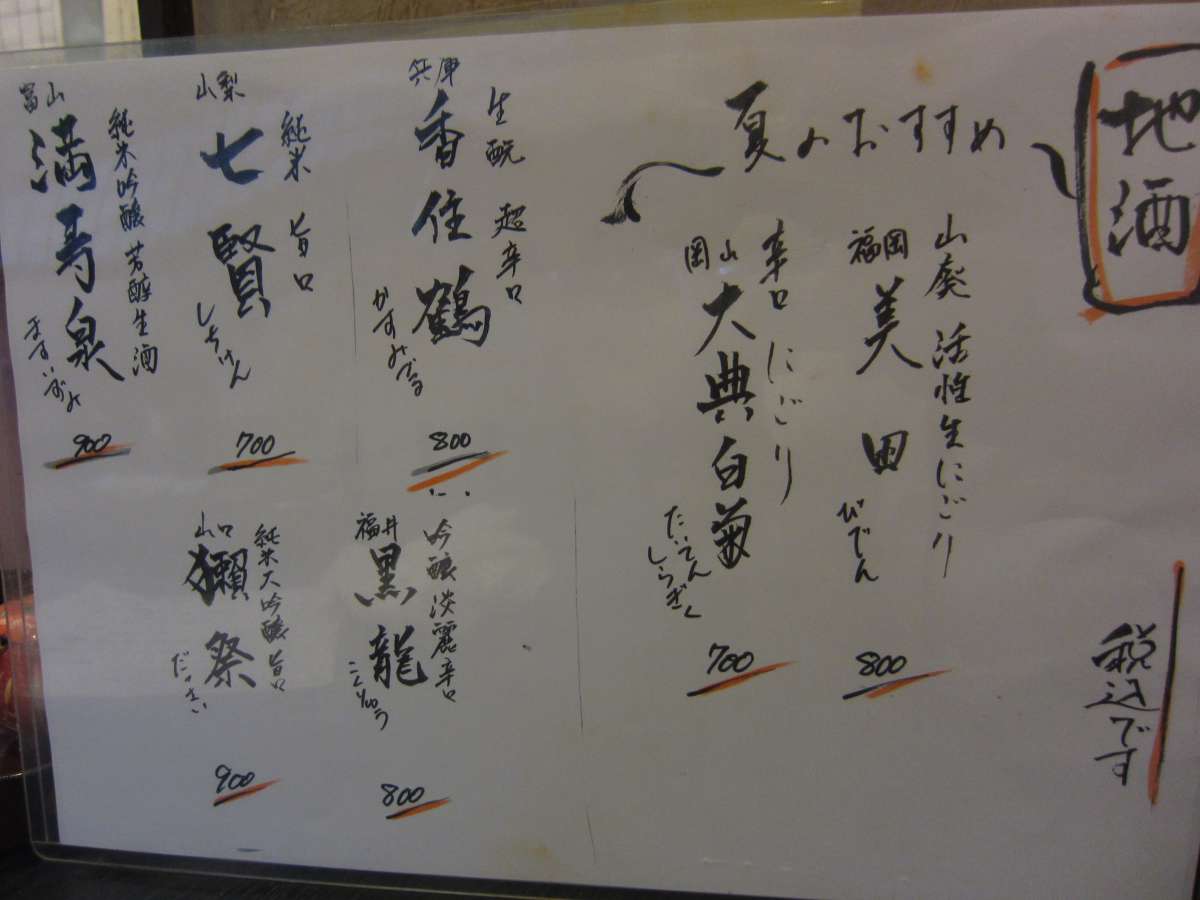 地酒
夏のおすすめ
山廃 活性生にごり
福岡
美田
びでん
800
辛口 にごり
岡山
大典白菊
だいてん
しらぎく
700
税込です
生酛 超辛口
兵庫
香住鶴
かすみづる
800
純米 旨口
山梨
七賢
しちけん
700
純米吟醸 芳醇生酒
富山
満寿泉
ますいずみ
900
吟醸 淡麗辛口
福井
黒龍
こくりゅう
800
純米大吟醸 旨口
山口
獺祭
だっさい
900